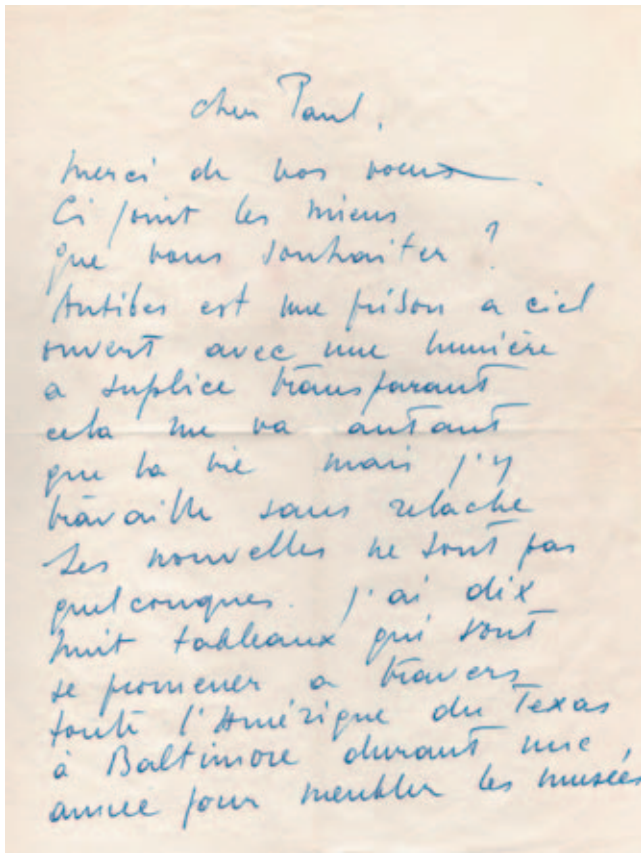 cher Paul,
Merci de vos voeux
Ci joint les miens
que vous souhaiter ?
Antibes est une prison a ciel
ouvert avec une lumière
a suplice transparant
cela me va autant
que la vie mais j'y
travaille sans relache
Les nouvelles ne sont pas
quelconques. j'ai dix
huit tableaux qui vont
se promener a travers
toute l'Amérique du Texas
à Baltimore durant une
année pour meubler les musées